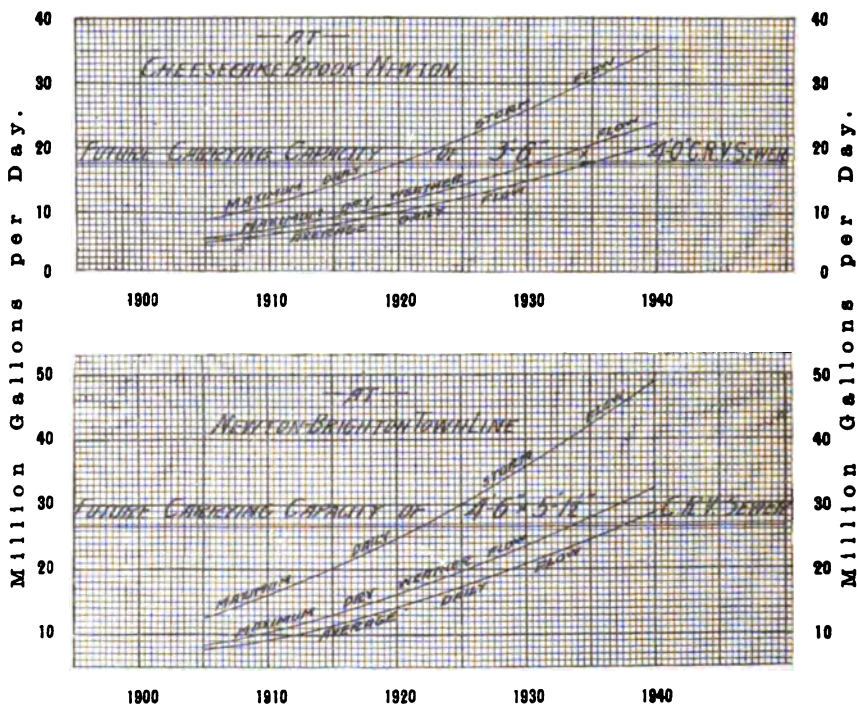 Million Gallons per Day.
40
30
20
10
0
— AT —
CHEESECAKE BROOK NEWTON
FUTURE CARRYING CAPACITY OF 3'-6" x 4'0" C.R.V. SEWER
MAXIMUM DAILY STORM FLOW
MAXIMUM DRY WEATHER FLOW
AVERAGE DAILY FLOW
40
30
20
10
0
1900 1910 1920 1930 1940
50
40
30
20
10
— AT —
NEWTON-BRIGHTON TOWN LINE
FUTURE CARRYING CAPACITY OF 4'-6" x C.R.V. SEWER
MAXIMUM DAILY STORM FLOW
MAXIMUM DRY WEATHER FLOW
AVERAGE DAILY FLOW
50
40
30
20
10
1900 1910 1920 1930 1940
Million Gallons per Day.